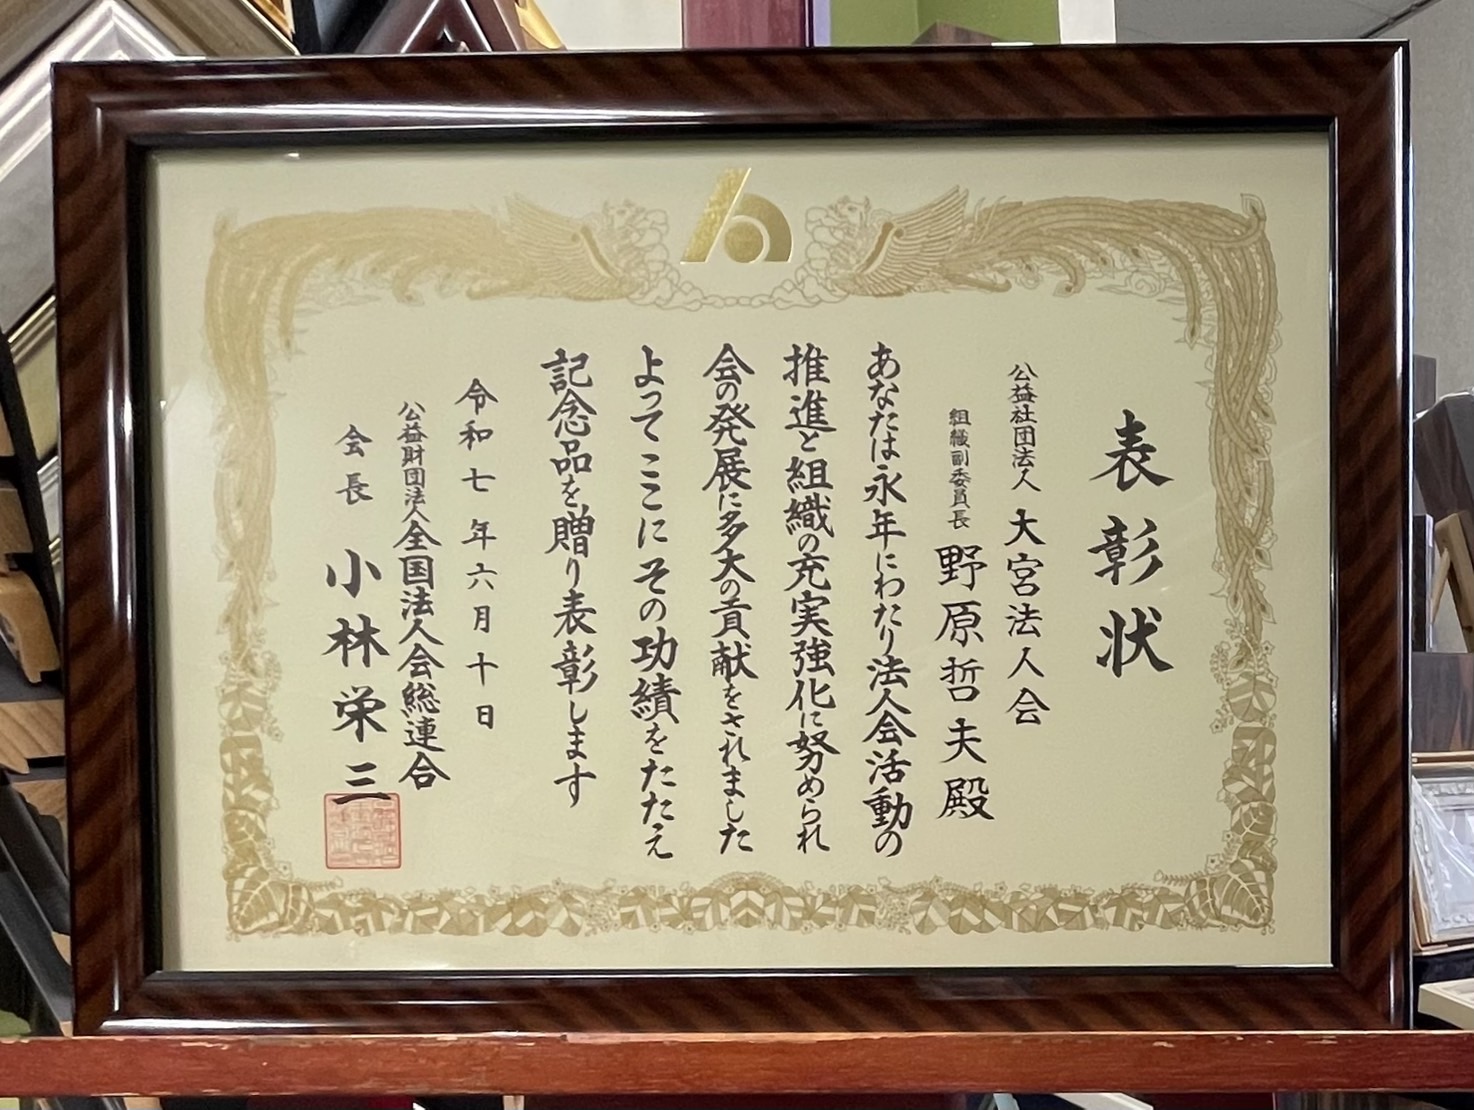 表彰状
公益社団法人 大宮法人会
組織副委員長 野原哲夫殿
あなたは永年にわたり法人会活動の
推進と組織の充実強化に努められ
会の発展に多大の貢献をされました
よってここにその功績をたたえ
記念品を贈り表彰します
令和七年六月十日
公益財団法人全国法人会総連合
会長 小林栄三